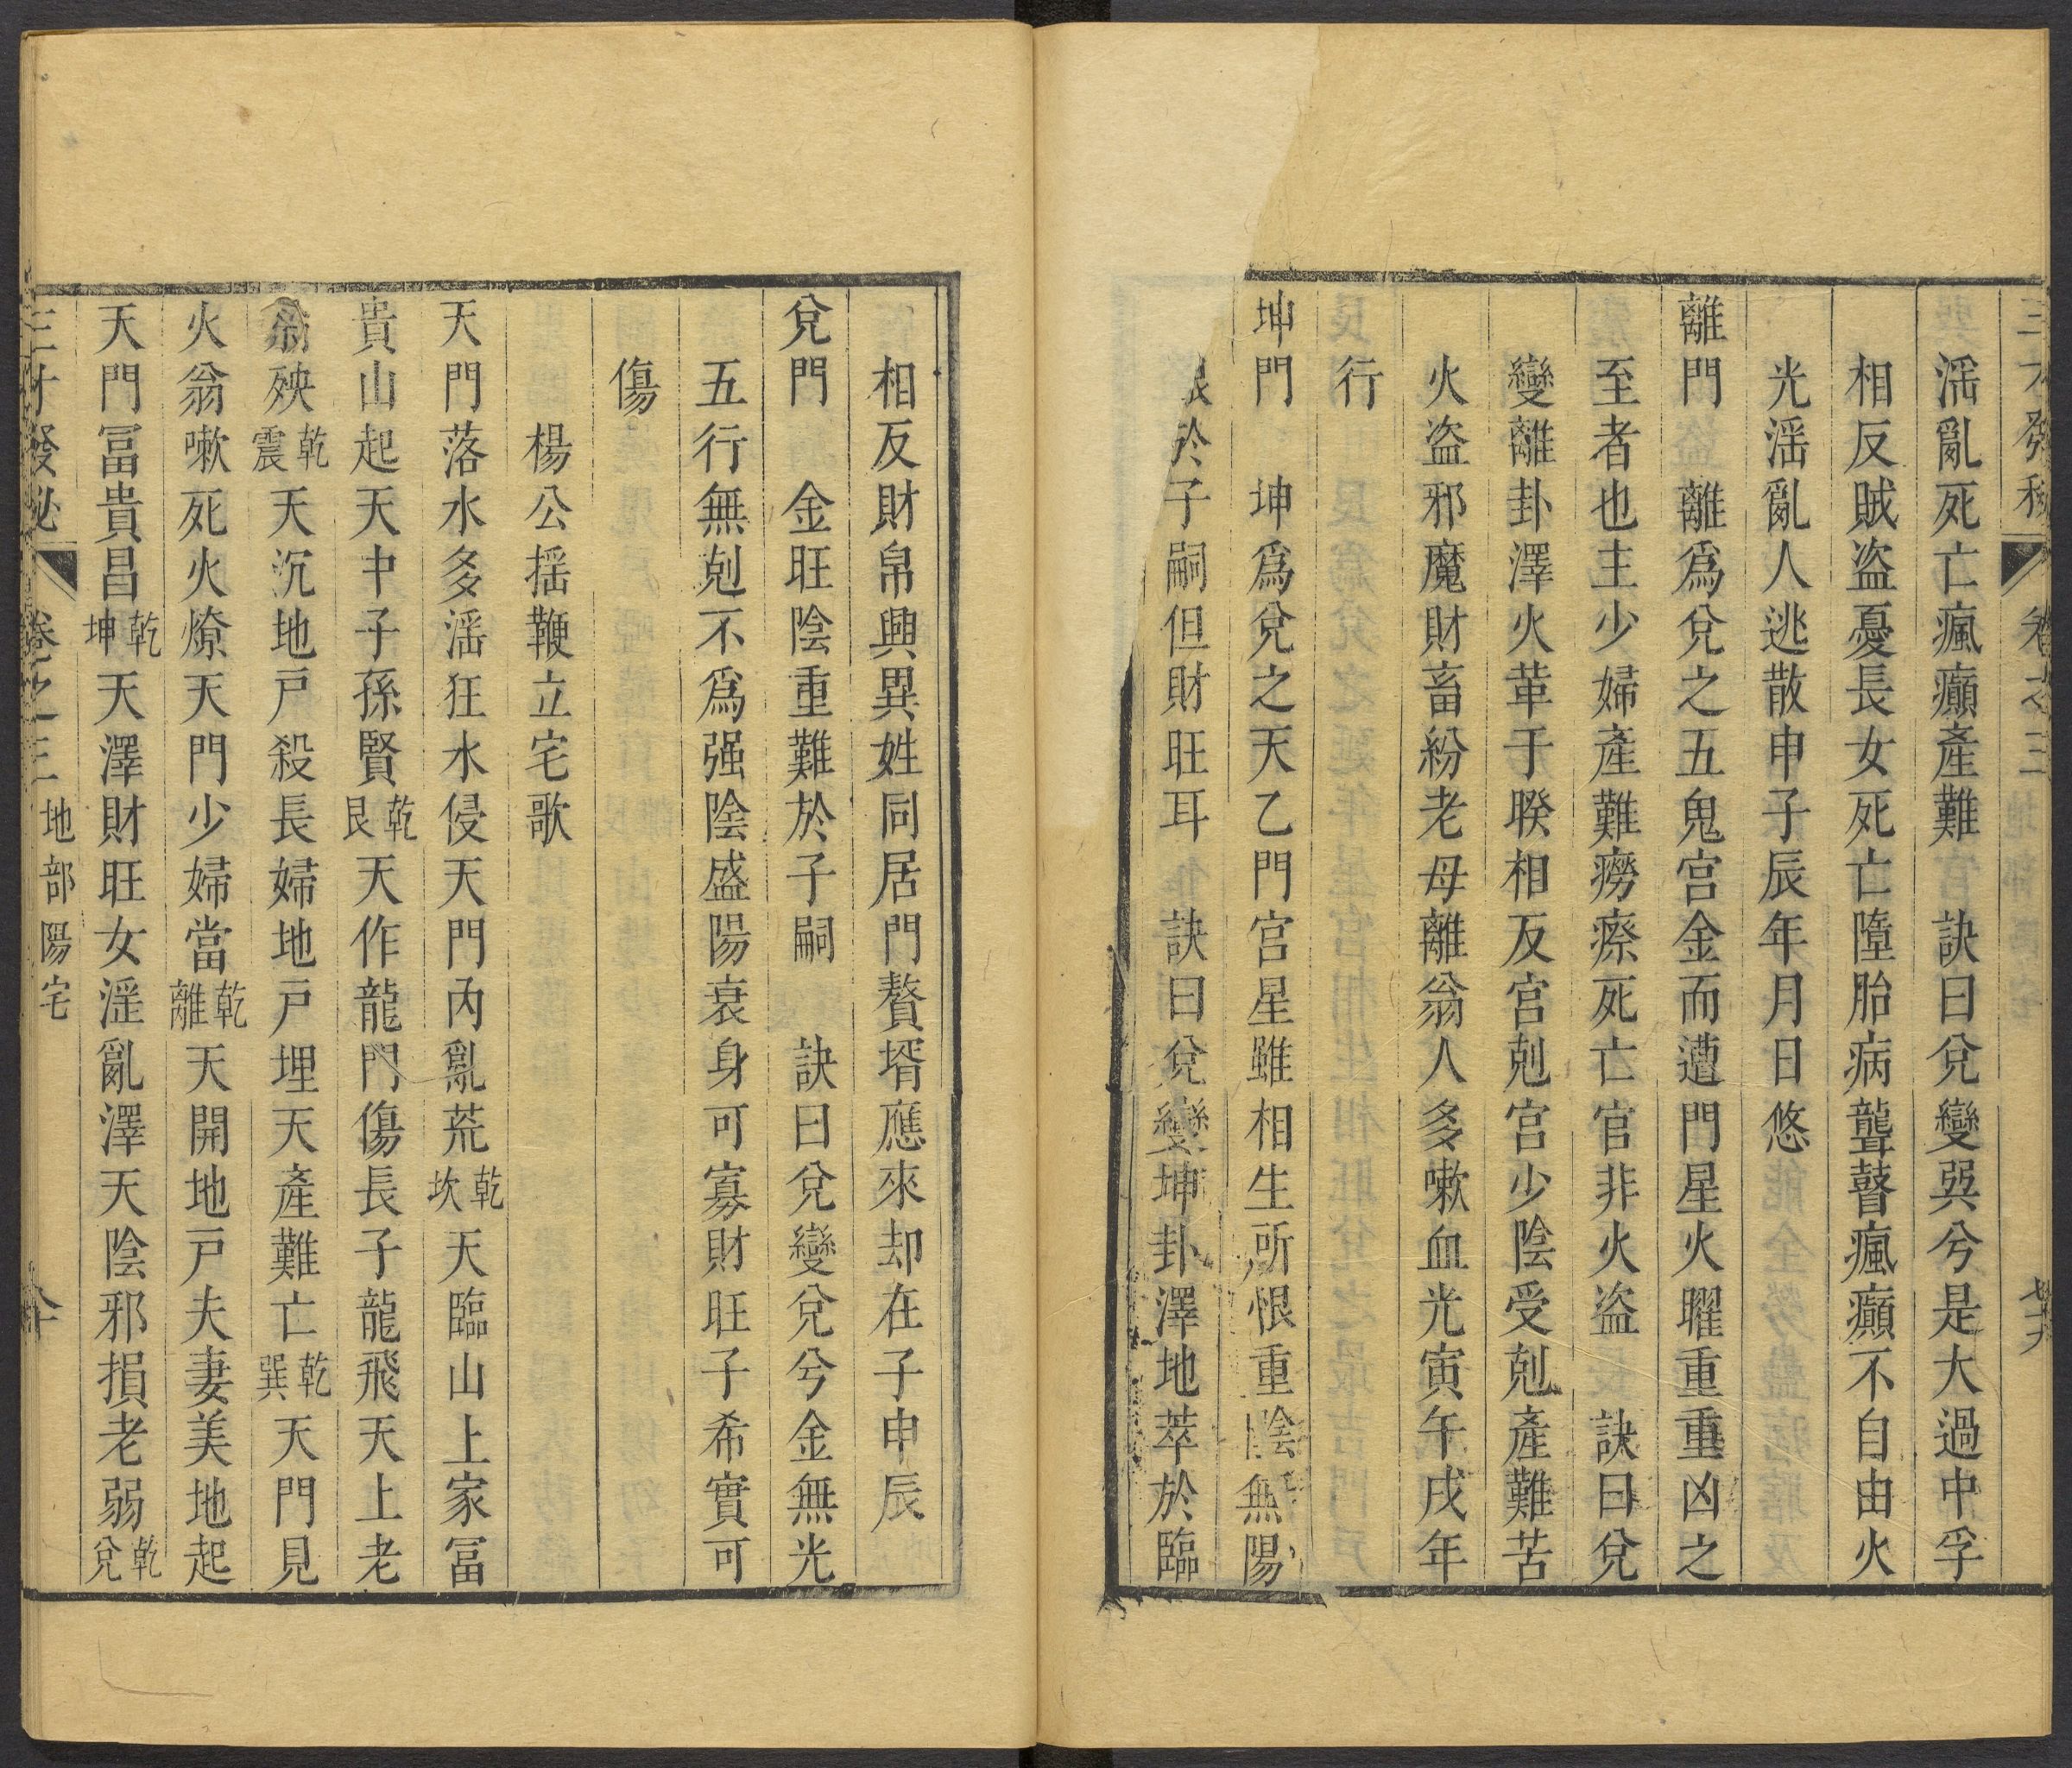 三才發秘 卷之三 地部陽宅 七十九
滛亂死亡瘋癲產難 訣曰兌變巽兮是大過中孚
相反賊盜憂長女死亡隨胎病聾瞽瘋癲不自由火
光滛亂人逃散申子辰年月日悠
離門 離爲兌之五鬼宫金而遭門星火曜重重凶之
至者也主少婦產難癆瘵死亡官非火盜 訣曰兌
變離卦澤火革于睽相反宫剋宫少陰受剋產難苦
火盜邪魔財畜紛老母離翁人多嗽血光寅午戌年
行
坤門 坤爲兌之天乙門宫星雖相生所恨重陰無陽
艱於子嗣但財旺耳 訣曰兌變坤卦澤地萃於臨
相反財帛興異姓同居門贅壻應來却在子申辰
兌門 金旺陰重難於子嗣 訣曰兌變兌兮金無光
五行無剋不爲强陰盛陽衰身可寡財旺子希實可
傷
楊公揺鞭立宅歌
天門落水多滛狂水侵天門内亂荒乾坎天臨山上家冨
貴山起天中子孫賢乾艮天作龍門傷長子龍飛天上老
翁殃乾震天沉地戸殺長婦地戸埋天產難亡乾巽天門見
火翁嗽死火燎天門少婦當乾離天開地戸夫妻美地起
天門冨貴昌乾坤天澤財旺女淫亂澤天陰邪損老弱乾兌
三才發秘 卷之三 地部陽宅 八十